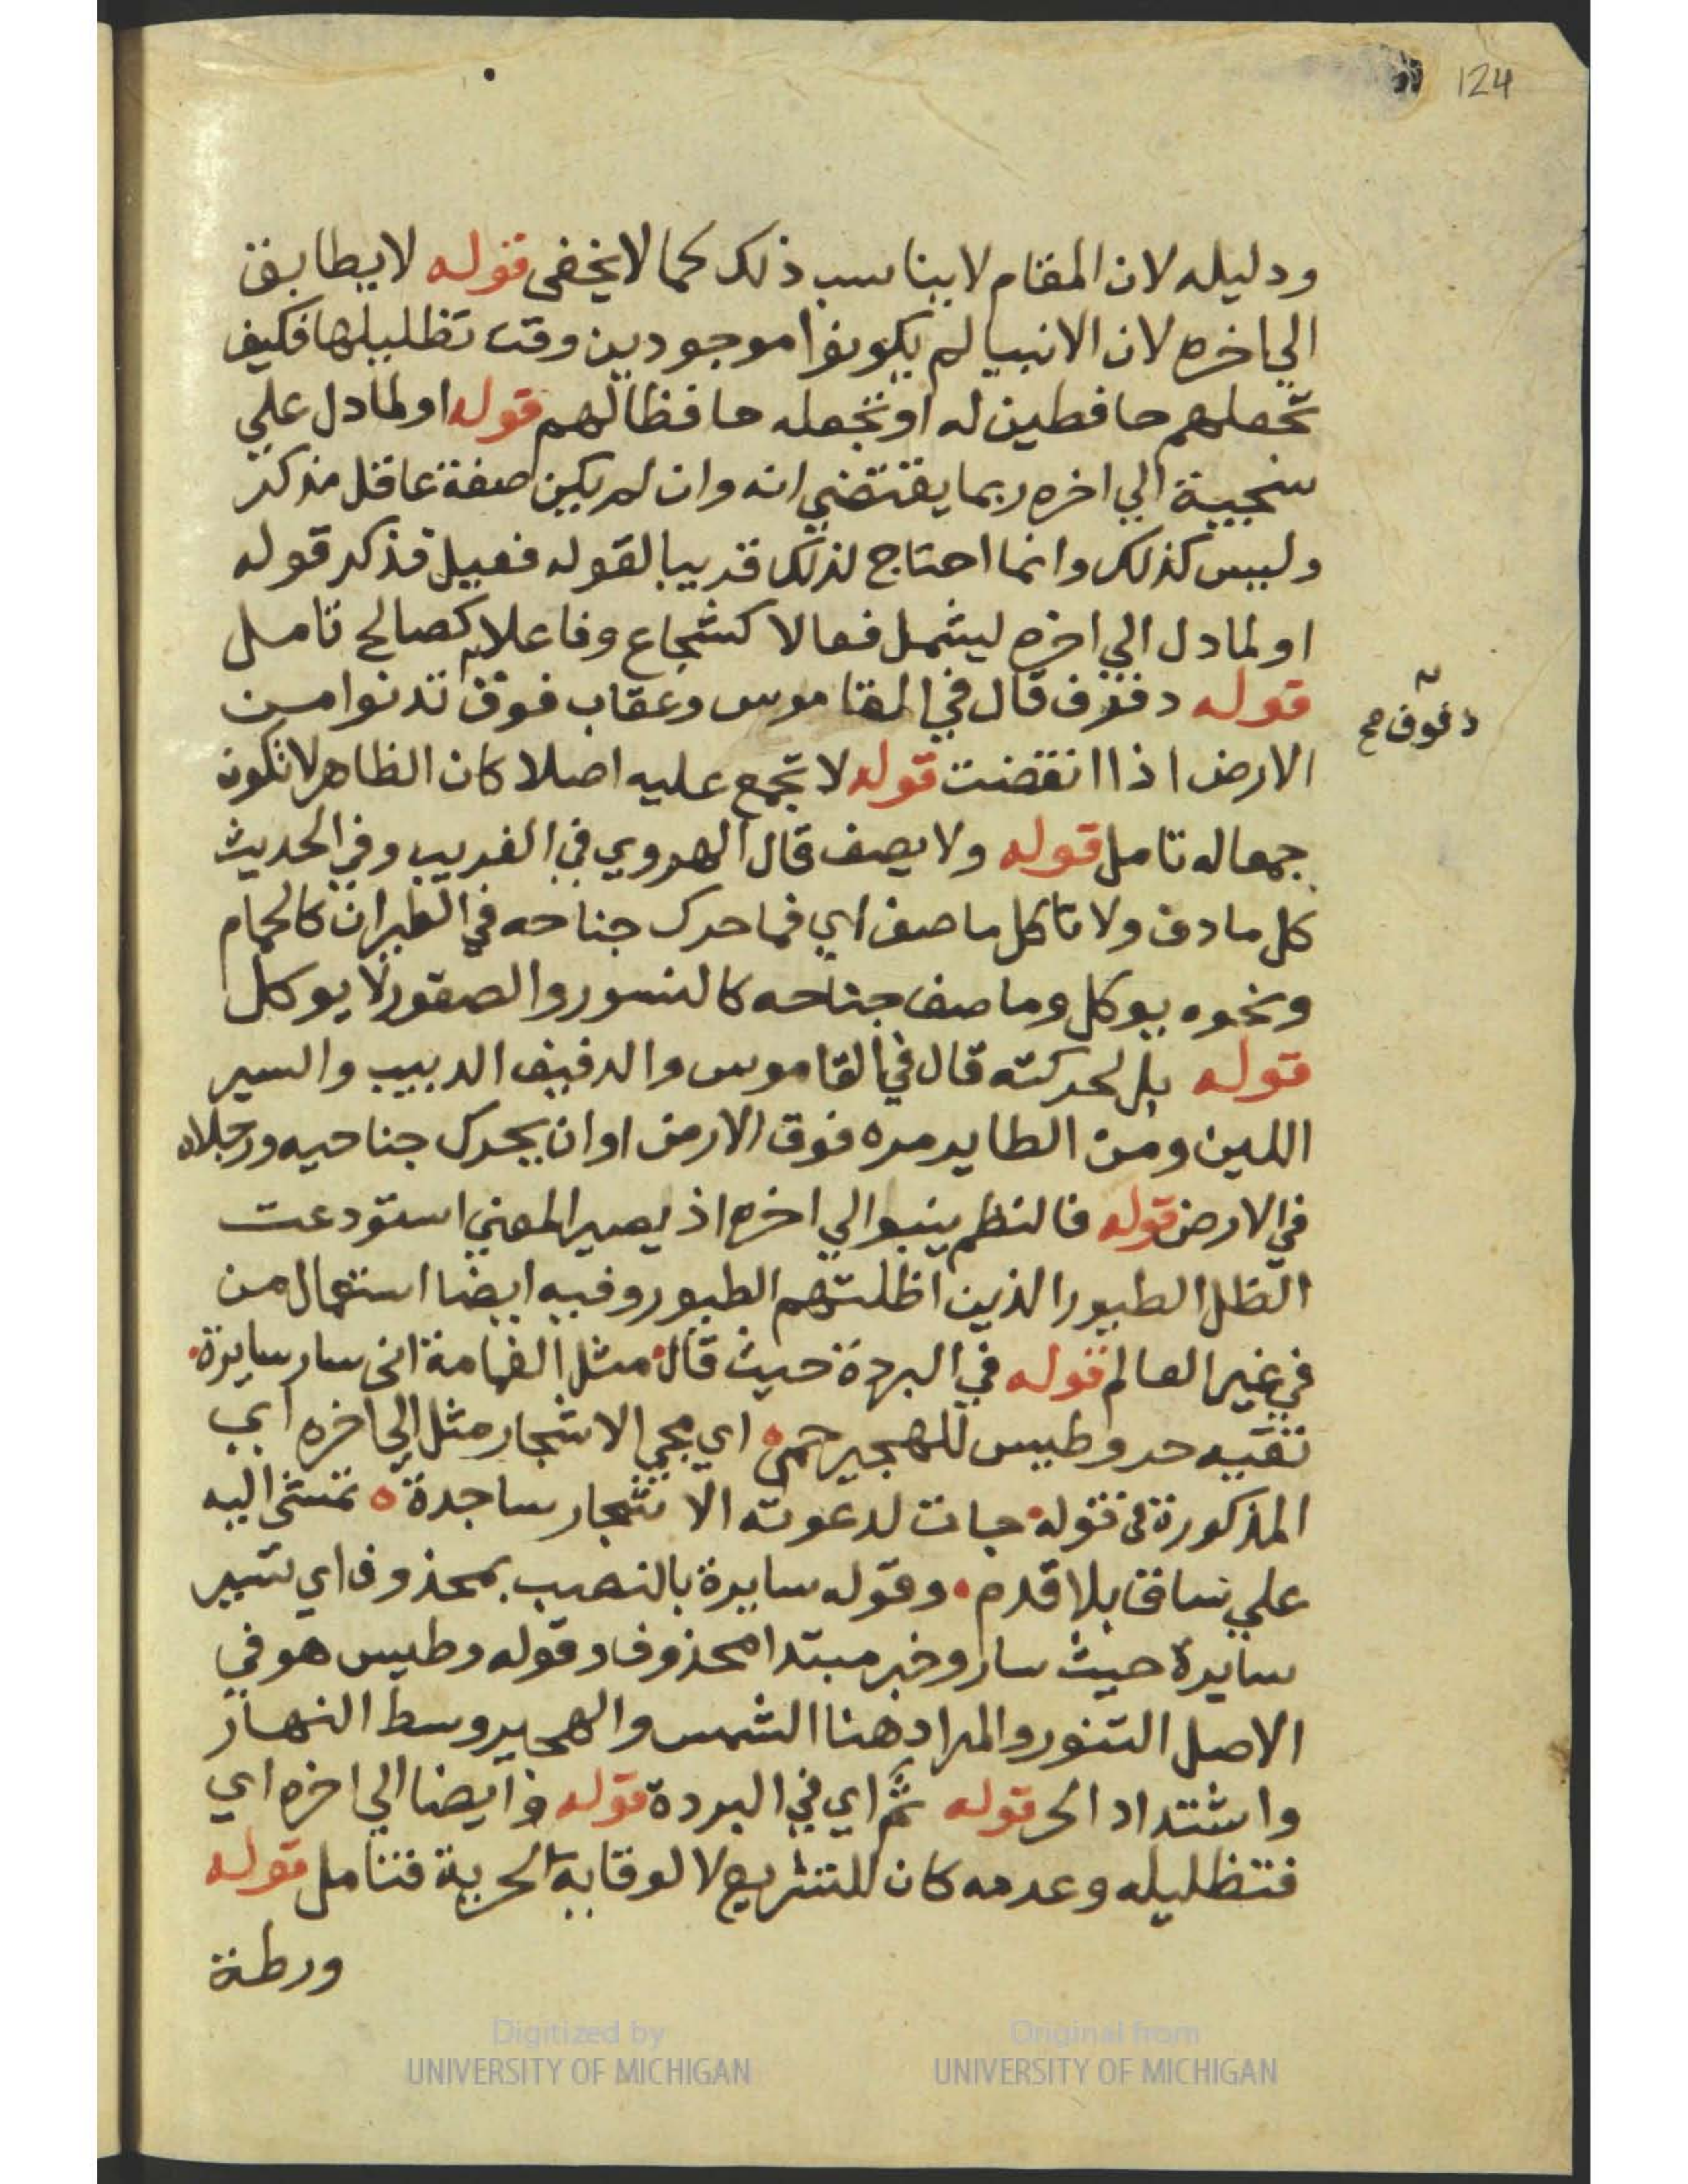 124
ودليله لان المقام لا يناسب ذلك كما لا يخفى قوله لا يطابق
الي اخره لان الانبيا لم يكونوا موجودين وقت تظليلها فكيف
تجعلهم حافظين له او تجعله حافظا لهم قوله او لما دل علي
سجية الي اخره ربما يقتضي انه وان لم يكن صفة عاقل مذكر
وليس كذلك وانما احتاج لذلك قريبا لقوله فعيل فذكر قوله
او لما دل الي اخره ليشمل فعالا كشجاع وفاعلا كصالح تامل
قوله دفوف قال في القاموس وعقاب فوق تدنوا من
دفوف صح
الارض اذا انقضت قوله لا تجمع عليه اصلا كان الظاهر لا تكون
جمعا له تامل قوله ولا يصف قال الهروي في الغريب وفي الحديث
كل ما دف ولا تاكل ما صف اي فما حرك جناحه في الطيران كالحمام
ونحوه يوكل وما صف جناحه كالنسور والصقور لا يوكل
قوله بل لحركته قال في القاموس والدفيف الدبيب والسير
اللين ومن الطاير مره فوق الارض او ان يحرك جناحيه ورجلاه
في الارض قوله فالنظم ينبوا الي اخره اذ يصير المعني استودعت
الظل الطيور الذين اظلتهم الطيور وفيه ايضا استعمال من
في غير العالم قوله في البردة حيث قال مثل الغمامة انى سار سايرة
تقيه حر وطيس للهجير حمى اي مجي الاشجار مثل الي اخره اي
المذكورة في قوله جات لدعوته الاشجار ساجدة تمشي اليه
علي ساق بلا قدم وقوله سايرة بالنصب بمحذوف اي تسير
سايرة حيث سار وخبر مبتدا محذوف وقوله وطيس هو في
الاصل التنور والمراد هنا الشمس والهجير وسط النهار
واشتداد الحر قوله ثم اي في البردة قوله وايضا الي اخره اي
فتظليله وعدمه كان للتشريع لا لوقاية الحرية فتامل قوله
ورطة
Digitized by
UNIVERSITY OF MICHIGAN
Original from
UNIVERSITY OF MICHIGAN